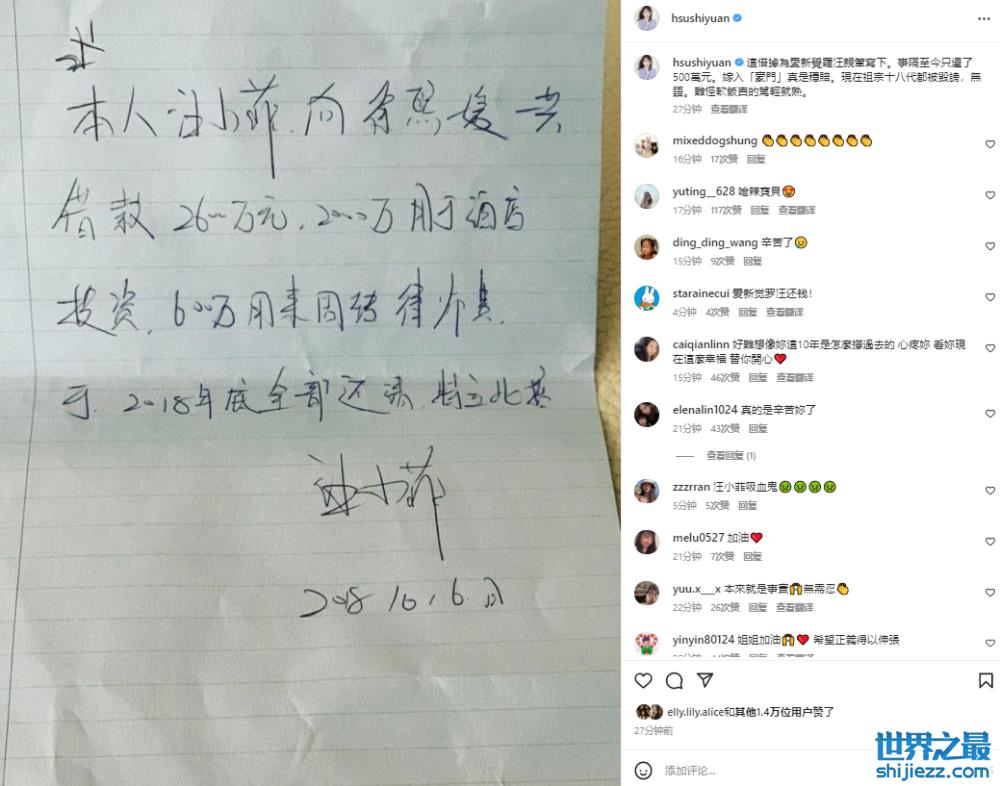 本人汪小菲,向徐熙媛共
借款2600万元,2000万用于酒店
投资,600万用来周转律师费.
于2018年底全部还清,特立此据
汪小菲
2018.10.6日
hsushiyuan
hsushiyuan 這借據為愛新覺羅汪親筆寫下。事隔至今只還了
500萬元。嫁入「豪門」真是穩賠。現在祖宗十八代都被毀謗，無
語。難怪軟飯賣的駕輕就熟。
27分钟 查看翻译
mixeddogshung 👏👏👏👏👏👏👏👏
16分钟 17次赞 回复
yuting__628 嗆辣寶貝😍
17分钟 117次赞 回复 查看翻译
ding_ding_wang 辛苦了😢
15分钟 9次赞 回复
starainecui 爱新觉罗汪还钱！
4分钟 4次赞 回复 查看翻译
caiqianlinn 好難想像妳這10年是怎麼撐過去的 心疼妳 看妳現
在這麼幸福 替你開心❤️
15分钟 46次赞 回复 查看翻译
elenalin1024 真的是辛苦妳了
21分钟 43次赞 回复
查看回复 (1)
zzzrran 汪小菲吸血鬼🤢🤢🤢🤢
5分钟 5次赞 回复
melu0527 加油❤️
21分钟 7次赞 回复
yuu.x___x 本來就是事實🙌無需忍👏
22分钟 26次赞 回复 查看翻译
yinyin80124 姐姐加油🙌❤️ 希望正義得以伸張
elly.lily.alice和其他1.4万位用户赞了
27分钟前
添加评论...
世界之最
shijiezz.com